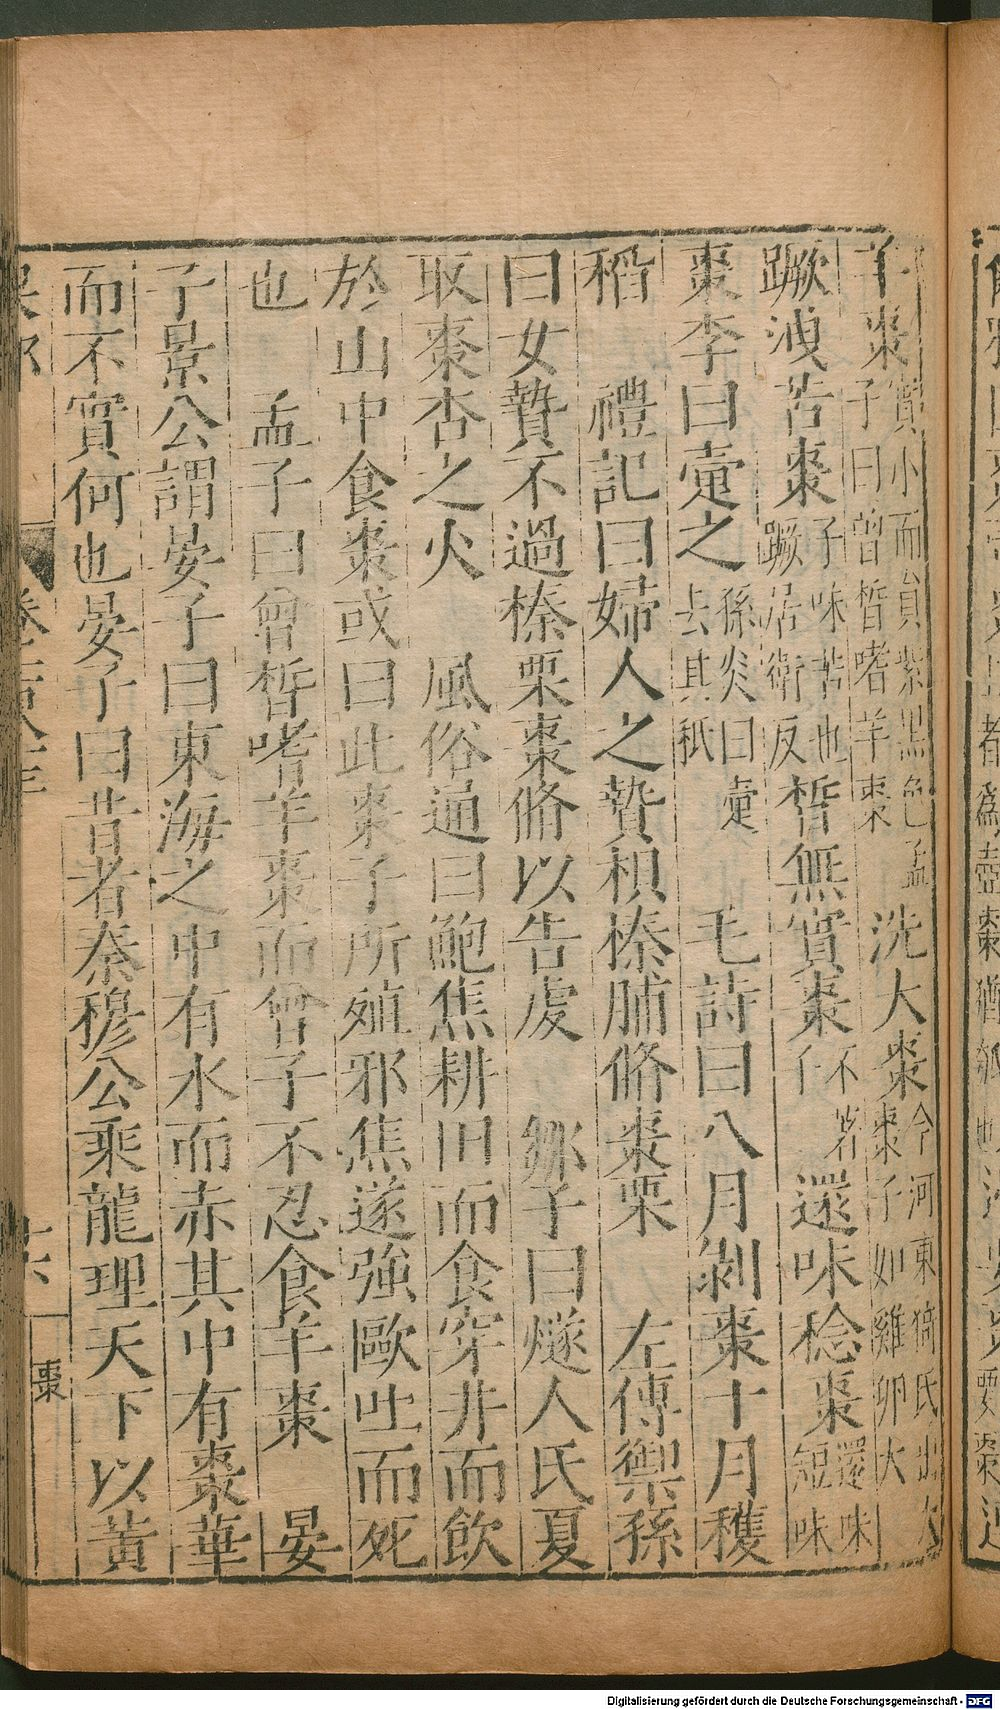 羊棗實小而貟紫黒色孟子曰曽晳嗜羊棗 洗大棗今河東猗氏出大棗子如雞卵大
蹶洩苦棗子味苦也蹶居衛反 晳無實棗不著子 還味稔棗還味短味
棗李曰疐之孫炎曰疐去其秪 毛詩曰八月剥棗十月穫
稻 禮記曰婦人之贄椇榛脯脩棗栗 左傳禦孫
曰女贄不過榛栗棗脩以告虔 鄒子曰燧人氏夏
取棗杏之火 風俗通曰鮑焦耕田而食穿井而飲
於山中食棗或曰此棗子所殖邪焦遂強歐吐而死
也 孟子曰曾晳嗜羊棗而曾子不忍食羊棗 晏
子景公謂晏子曰東海之中有水而赤其中有棗華
而不實何也晏子曰昔者秦穆公乘龍理天下以黄
果部
棗
都爲壺棗猶瓠也
Digitalisierung gefördert durch die Deutsche Forschungsgemeinschaft - DFG